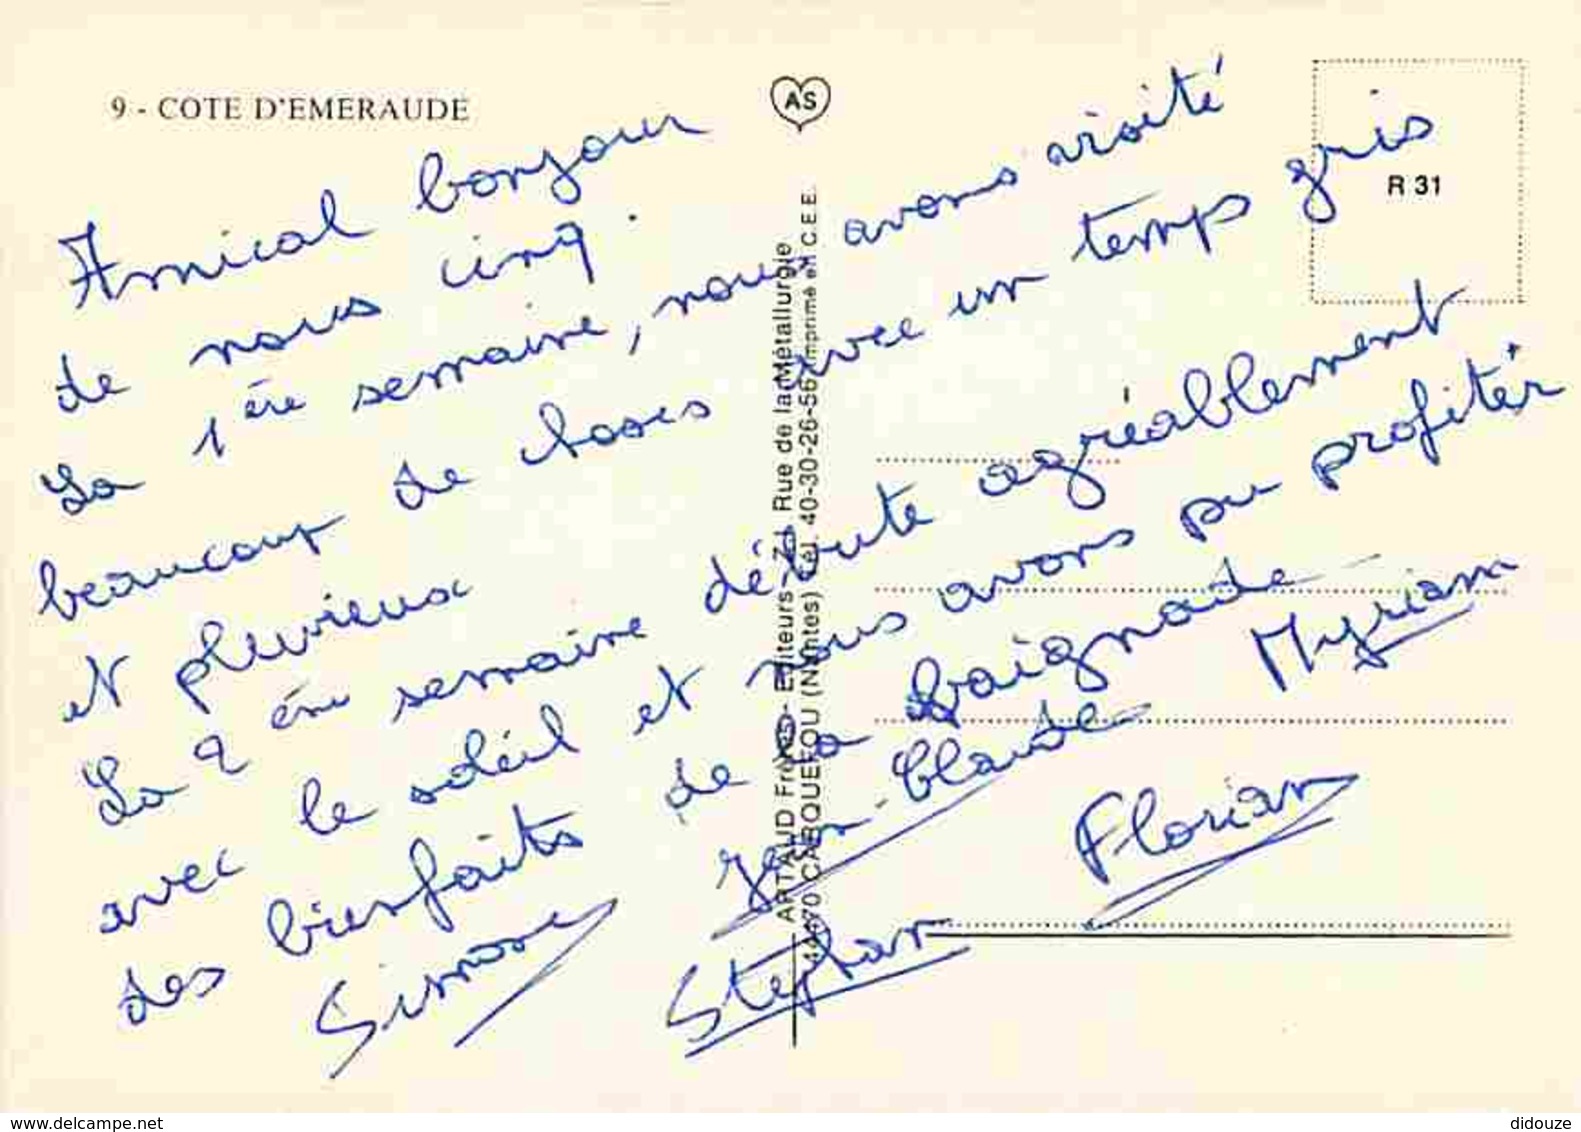 9 - COTE D'EMERAUDE
AS
R 31
Amical bonjour
de nous cinq.
La 1ère semaine, nous avons visité
beaucoup de choses avec un temps gris
et pluvieux
La 2ème semaine débute agréablement
avec le soleil et nous avons pu profiter
des bienfaits de la baignade
Simone Jean-Claude Myriam
Stephan Florian
ARTAUD Frères - Editeurs - Z.I. Rue de la Métallurgie
44470 CARQUEFOU (Nantes) Tél. 40-30-26-56 Imprimé en C.E.E.
www.delcampe.net
didouze